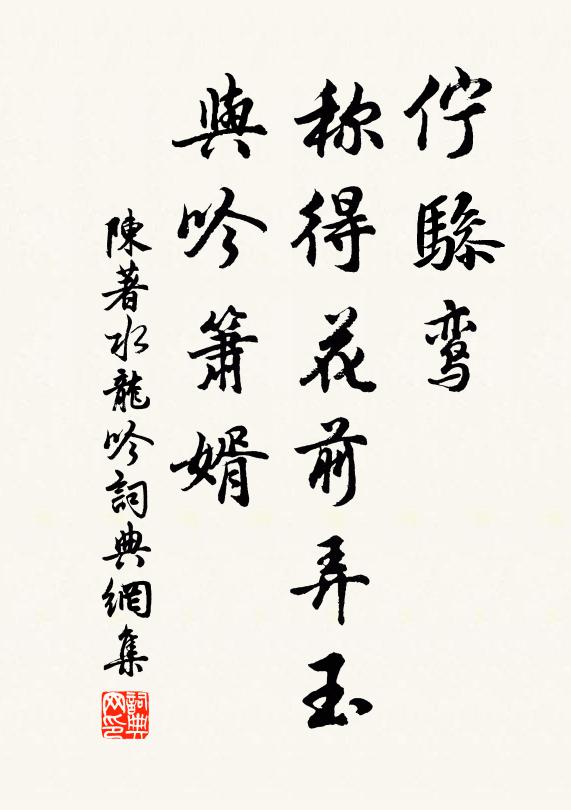 佇驂鸾
称得花前弄玉
與吟簫婿
陳著水龍吟詞典網集
詞典网印